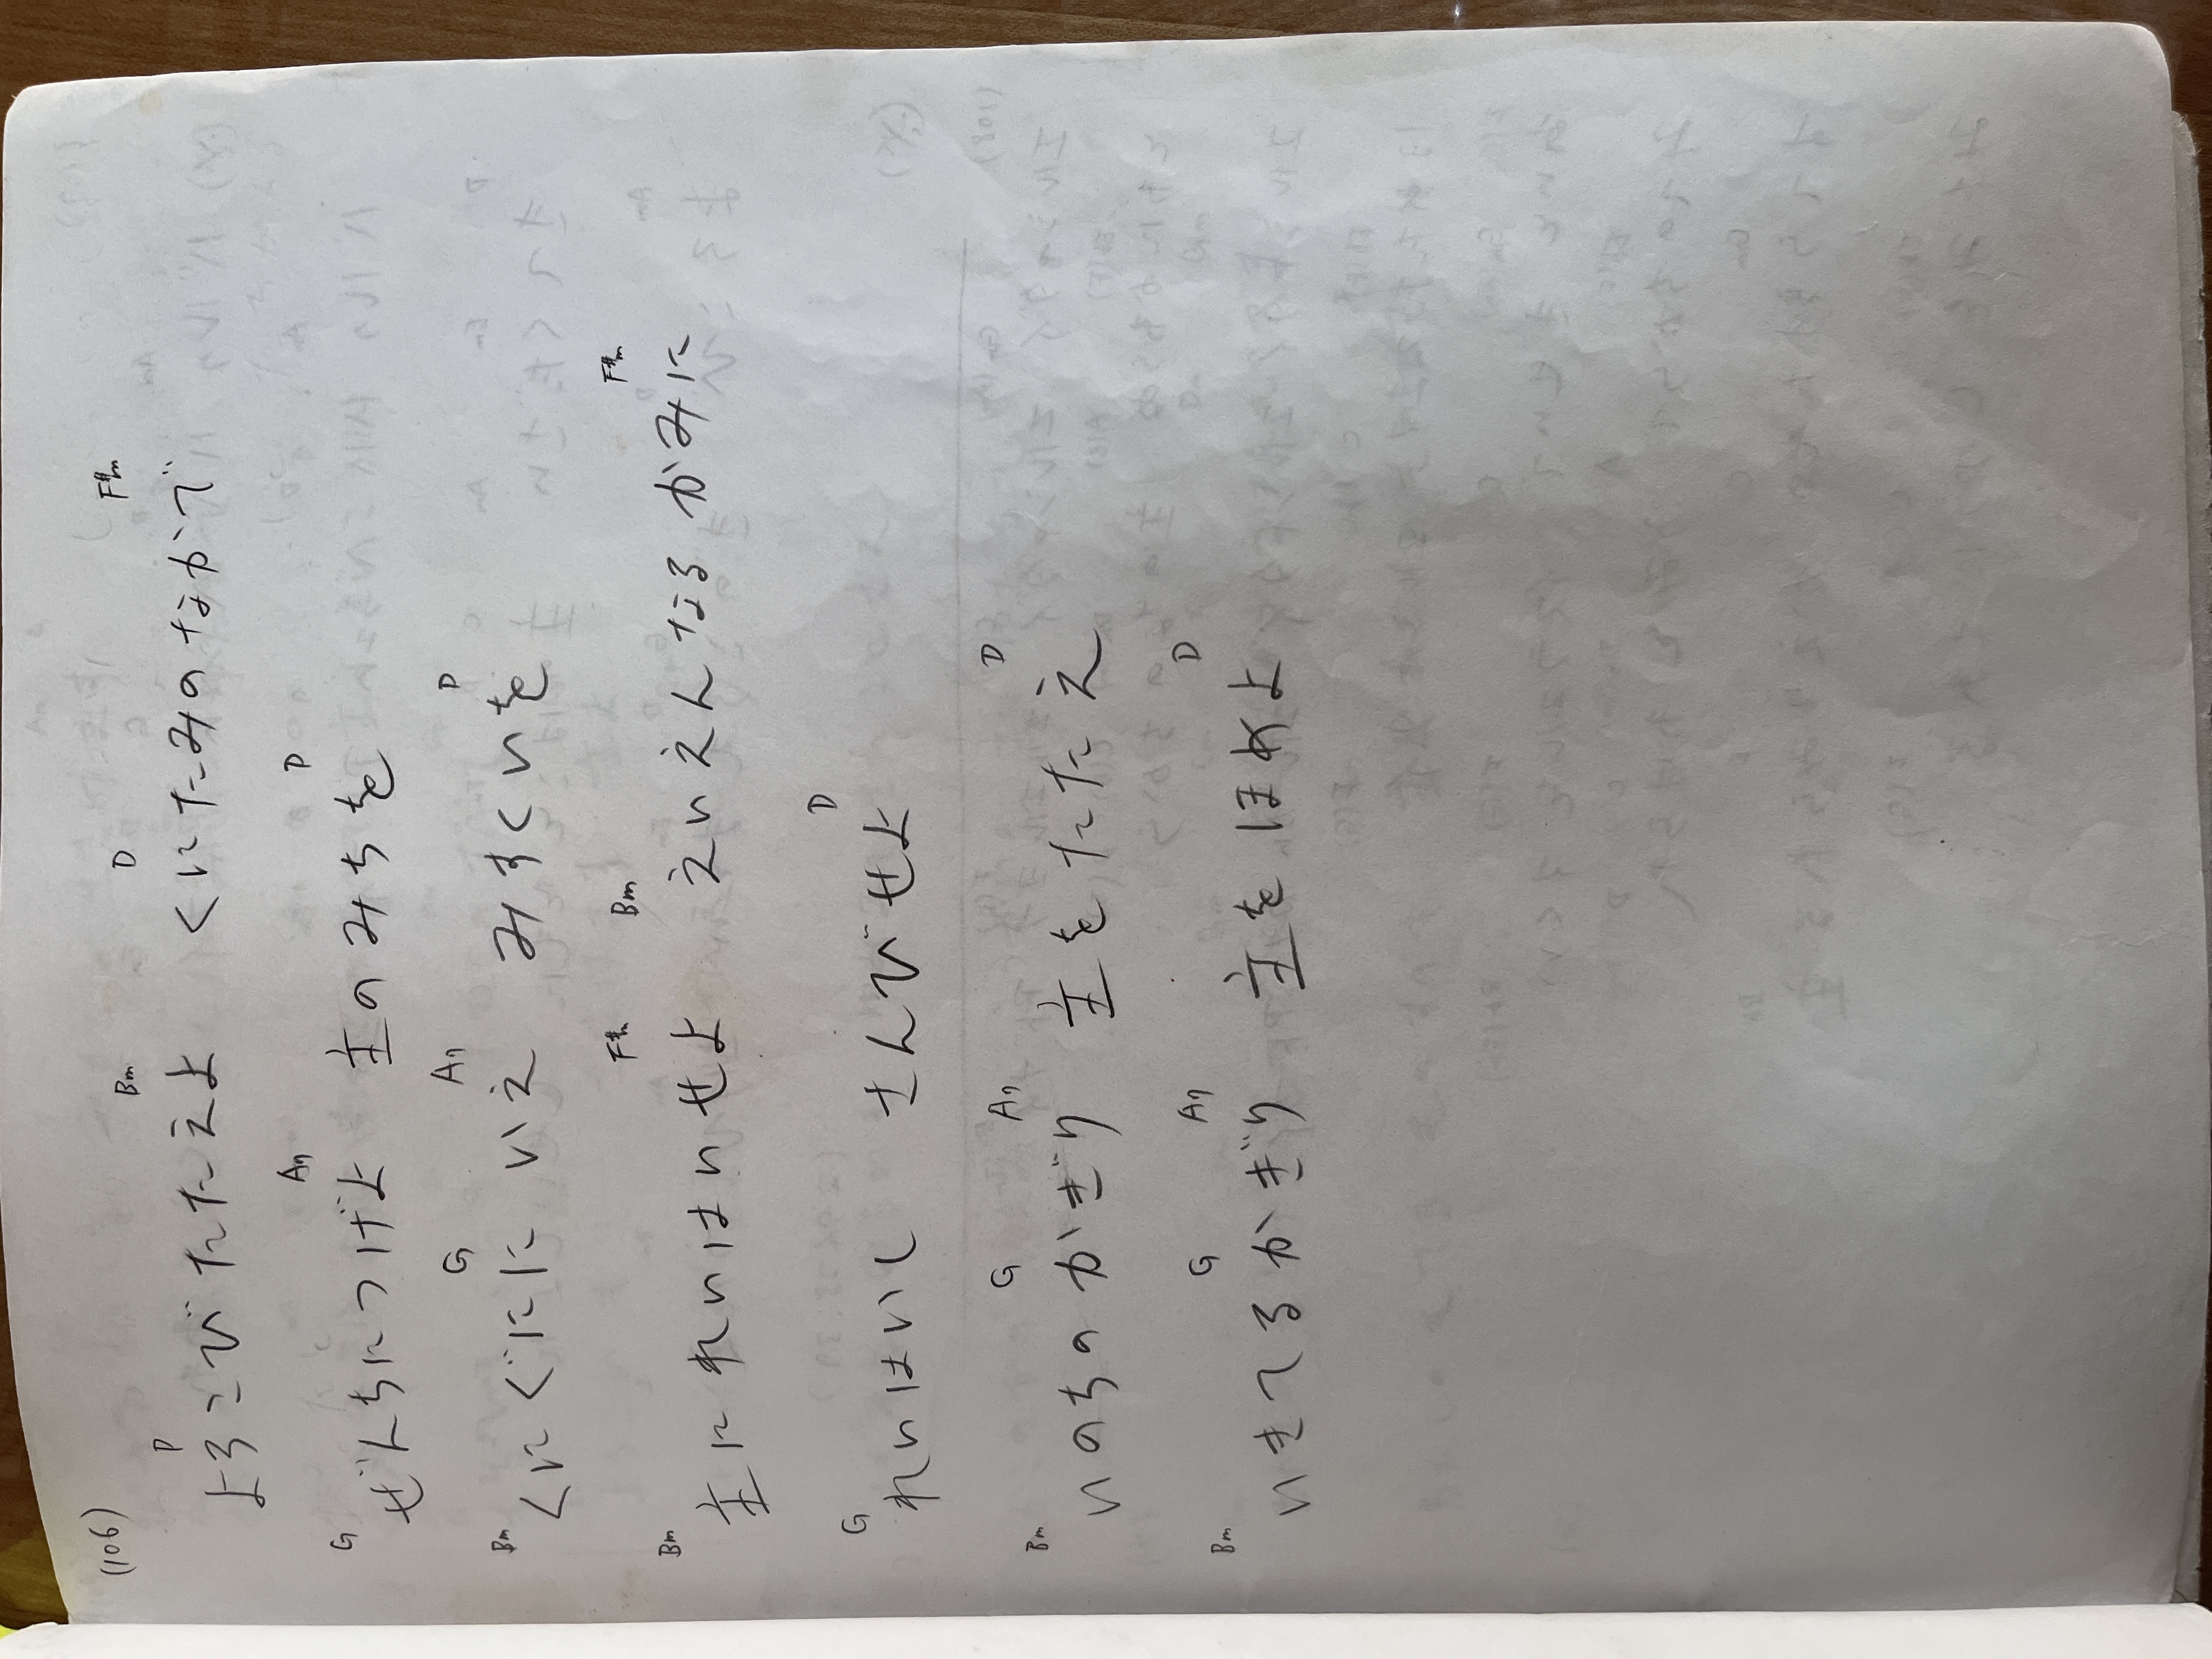 (106)
D Bm D F#m
よろこびたたえよ くにたみのなかで
G A7 D
ぜんちにつげよ 主のみちを
Bm G A7 D
くにぐににいえ みすくいを
Bm F#m Bm F#m
主にれいはいせよ えいえんなるかみに
G D
れいはいし さんびせよ
Bm G A7 D
いのちのかぎり 主をたたえ
Bm G A7 D
いきてるかぎり 主をほめよ